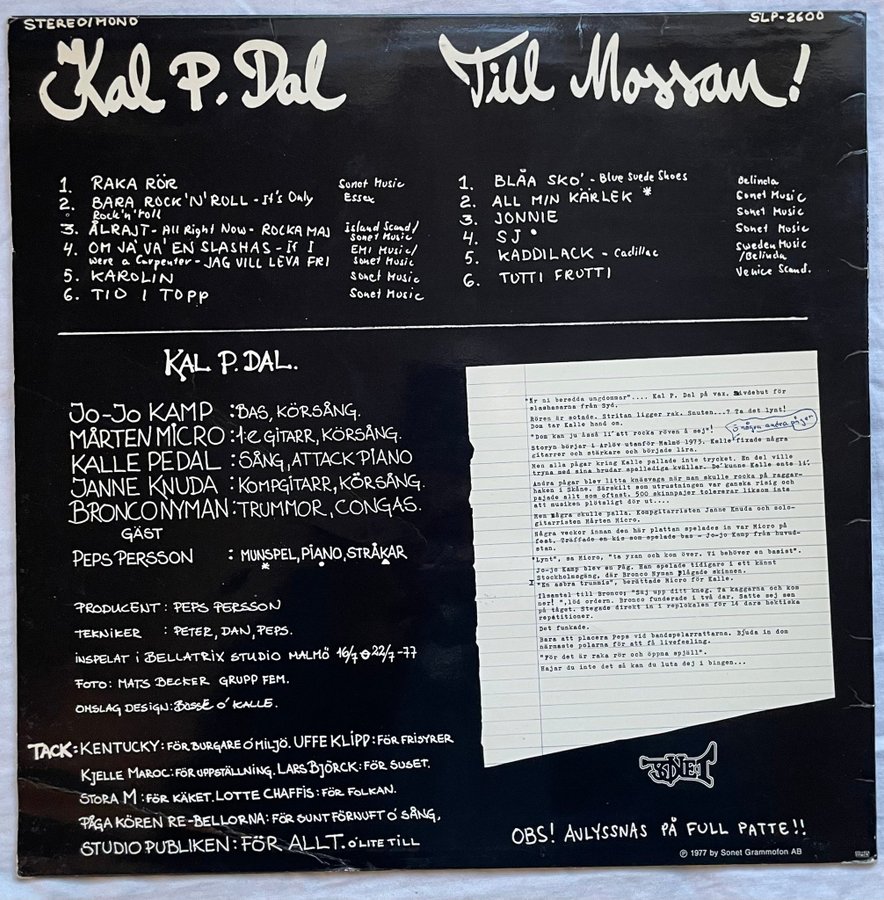 STEREO/MONO
SLP-2600
Kal P. Dal
Till Mossan!
1. RAKA RÖR Sonet Music
2. BARA ROCK'N'ROLL - It's Only Essex
Rock'n'roll
3. ÅLRAJT - All Right Now - ROCKA MAJ Island Scand/
Sonet Music
4. OM JA' VA' EN SLASHAS - If I EMI Music/
Were a Carpenter - JAG VILL LEVA FRI Sonet Music
5. KAROLIN Sonet Music
6. TIO I TOPP Sonet Music
1. BLÅA SKO' - Blue Suede Shoes Belinda
2. ALL MIN KÄRLEK * Sonet Music
3. JONNIE Sonet Music
4. SJ Sonet Music
5. KADDILACK - Cadillac Sweden Music
/Belinda
6. TUTTI FRUTTI Venice Scand.
KAL P. DAL.
JO-JO KAMP : BAS, KÖRSÅNG.
MÅRTEN MICRO : 1:E GITARR, KÖRSÅNG.
KALLE PEDAL : SÅNG, ATTACK PIANO
JANNE KNUDA : KOMPGITARR, KÖRSÅNG.
BRONCO NYMAN : TRUMMOR, CONGAS.
GÄST
PEPS PERSSON : MUNSPEL, PIANO, STRÅKAR
PRODUCENT : PEPS PERSSON
TEKNIKER : PETER, DAN, PEPS.
INSPELAT I BELLATRIX STUDIO MALMÖ 16/7 22/7 -77
FOTO : MATS BECKER GRUPP FEM.
OMSLAG DESIGN : BOSSE O' KALLE.
TACK : KENTUCKY : FÖR BURGARE O' MILJÖ. UFFE KLIPP : FÖR FRISYRER
KJELLE MAROC : FÖR UPPSTÄLLNING. LARS BJÖRCK : FÖR SUSET.
STORA M : FÖR KÄKET. LOTTE CHAFFIS : FÖR FOLKAN.
PÅGA KÖREN RE-BELLORNA : FÖR SUNT FÖRNUFT O' SÅNG,
STUDIO PUBLIKEN : FÖR ALLT. O' LITE TILL
"Är ni beredda ungdommar".... Kal P. Dal på vax. Skivdebut för
slashasarna från Syd.
Rören är sotade. Stritan ligger rak. Snuten...? Ta det lynt!
Dom tar Kalle hand om.
"Dom kan ju asså li'att rocka röven å sej!" å några andra pågar
Storyn börjar i Arlöv utanför Malmö 1973. Kalle fixade några
gitarrer och stärkare och började lira.
Men alla pågar kring Kalle pallade inte trycket. En del ville
tryna med sina brudar spelledige kvällar. De'kunne Kalle ente li'.
Andra pågar blev litta knäsvaga när man skulle rocka på raggar-
haken i Skåne. Särskilt som utrustningen var ganska risig och
pajade allt som oftast. 500 skinnpajer tolererar liksom inte
att musiken plötsligt dör ut....
Men några skulle palla. Kompgitarristen Janne Knuda och solo-
gitarristen Mårten Micro.
Några veckor innan den här plattan spelades in var Micro på
fest. Träffade en kis som spelade bas - Jo-jo Kamp från huvud-
stan.
"Lynt", sa Micro, "ta yxan och kon över. Vi behöver en basist".
Jo-jo Kamp blev en Påg. Han spelade tidigare i ett kännt
Stockholmsgäng, där Bronco Nyman plågade skinnen.
"En asbra trummis", berättade Micro för Kalle.
Ilsamtal till Bronco; "Skj upp ditt kneg. Ta kaggarna och kom
ner! ",löd ordern. Bronco funderade i två dar. Satte sej sen
på tåget. Stegade direkt in i replokalen för 14 dars hektiska
repetitioner.
Det funkade.
Bara att placera Peps vid bandspelarrattarna. Bjuda in dom
närmaste polarna för att få livefeeling.
"För det är raka rör och öppna spjäll".
Hajar du inte det så kan du luta dej i bingen...
KNET
OBS! AVLYSSNAS PÅ FULL PATTE!!
℗ 1977 by Sonet Grammofon AB